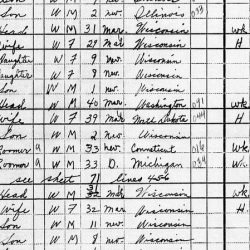 Son W M 2 new Illinois
Head W M 31 Mar Wisconsin wk
Wife W F 29 Mar Wisconsin H
Daughter W F 9 new Wisconsin
Daughter W F 8 new Wisconsin
Son W M 1 new Wisconsin
Head W M 40 mar Washington 091 wk
Wife W F 39 mar North Dakota 044 H
Son W M 2 new Wisconsin
Roomer 9 W M 33 new Connecticut 016 wk
Roomer 9 W M 33 D. Michigan
see sheet 71 lines 4
Head W M 32 Mar Wisconsin wk
Wife W F 32 Mar Wisconsin H
Son W M 11 new Wisconsin
Son W M 8 new Wisconsin